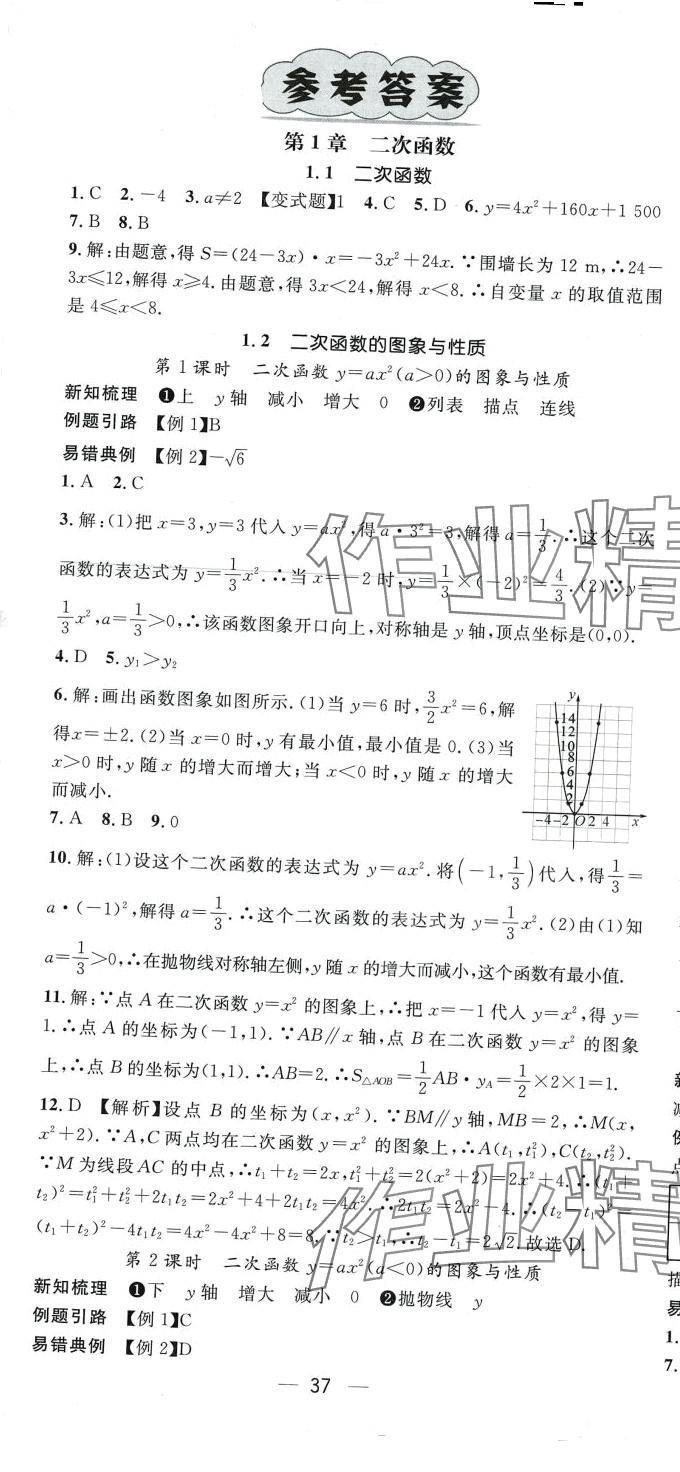 参考答案
第1章 二次函数
1.1 二次函数
1.C 2.-4 3.a≠2 【变式题】1 4.C 5.D 6.y=4x²+160x+1 500
7.B 8.B
9.解:由题意,得 S=(24-3x)·x=-3x²+24x.∵围墙长为 12 m,∴24-
3x≤12,解得 x≥4.由题意,得 3x<24,解得 x<8.∴自变量 x 的取值范围
是 4≤x<8.
1.2 二次函数的图象与性质
第1课时 二次函数 y=ax²(a>0)的图象与性质
新知梳理 ❶上 y 轴 减小 增大 0 ❷列表 描点 连线
例题引路 【例1】B
易错典例 【例2】-√6
1.A 2.C
3.解:(1)把 x=3,y=3 代入 y=ax²,得 a·3²=3,解得 a=1/3.∴这个二次
函数的表达式为 y=1/3x².∴当 x=-2 时,y=1/3×(-2)²=4/3.(2)∵y=
1/3x²,a=1/3>0,∴该函数图象开口向上,对称轴是 y 轴,顶点坐标是(0,0).
4.D 5.y₁>y₂
6.解:画出函数图象如图所示.(1)当 y=6 时,3/2x²=6,解
得x=±2.(2)当 x=0 时,y 有最小值,最小值是 0.(3)当
x>0 时,y 随 x 的增大而增大;当 x<0 时,y 随 x 的增大
而减小.
y
14
12
10
8
6
4
2
-4-2 O 2 4 x
7.A 8.B 9.0
10.解:(1)设这个二次函数的表达式为 y=ax².将(-1,1/3)代入,得1/3=
a·(-1)²,解得 a=1/3.∴这个二次函数的表达式为 y=1/3x².(2)由(1)知
a=1/3>0,∴在抛物线对称轴左侧,y 随 x 的增大而减小,这个函数有最小值.
11.解:∵点 A 在二次函数 y=x² 的图象上,∴把 x=-1 代入 y=x²,得 y=
1.∴点 A 的坐标为(-1,1).∵AB∥x 轴,点 B 在二次函数 y=x² 的图象
上,∴点 B 的坐标为(1,1).∴AB=2.∴S△AOB=1/2AB·yA=1/2×2×1=1.
12.D 【解析】设点 B 的坐标为(x,x²).∵BM∥y 轴,MB=2,∴M(x,
x²+2).∵A,C 两点均在二次函数 y=x² 的图象上,∴A(t₁,t₁²),C(t₂,t₂²).
∵M 为线段 AC 的中点,∴t₁+t₂=2x,t₁²+t₂²=2(x²+2)=2x²+4.∴(t₁+
t₂)²=t₁²+t₂²+2t₁t₂=2x²+4+2t₁t₂=4x².∴2t₁t₂=2x²-4.∴(t₂-t₁)²=
(t₁+t₂)²-4t₁t₂=4x²-4x²+8=8,∵t₂>t₁,∴t₂-t₁=2√2.故选 D.
第2课时 二次函数 y=ax²(a<0)的图象与性质
新知梳理 ❶下 y 轴 增大 减小 0 ❷抛物线 y
例题引路 【例1】C
易错典例 【例2】D
— 37 —
作业精
作业精
新
例
点
描
易
1.
7.